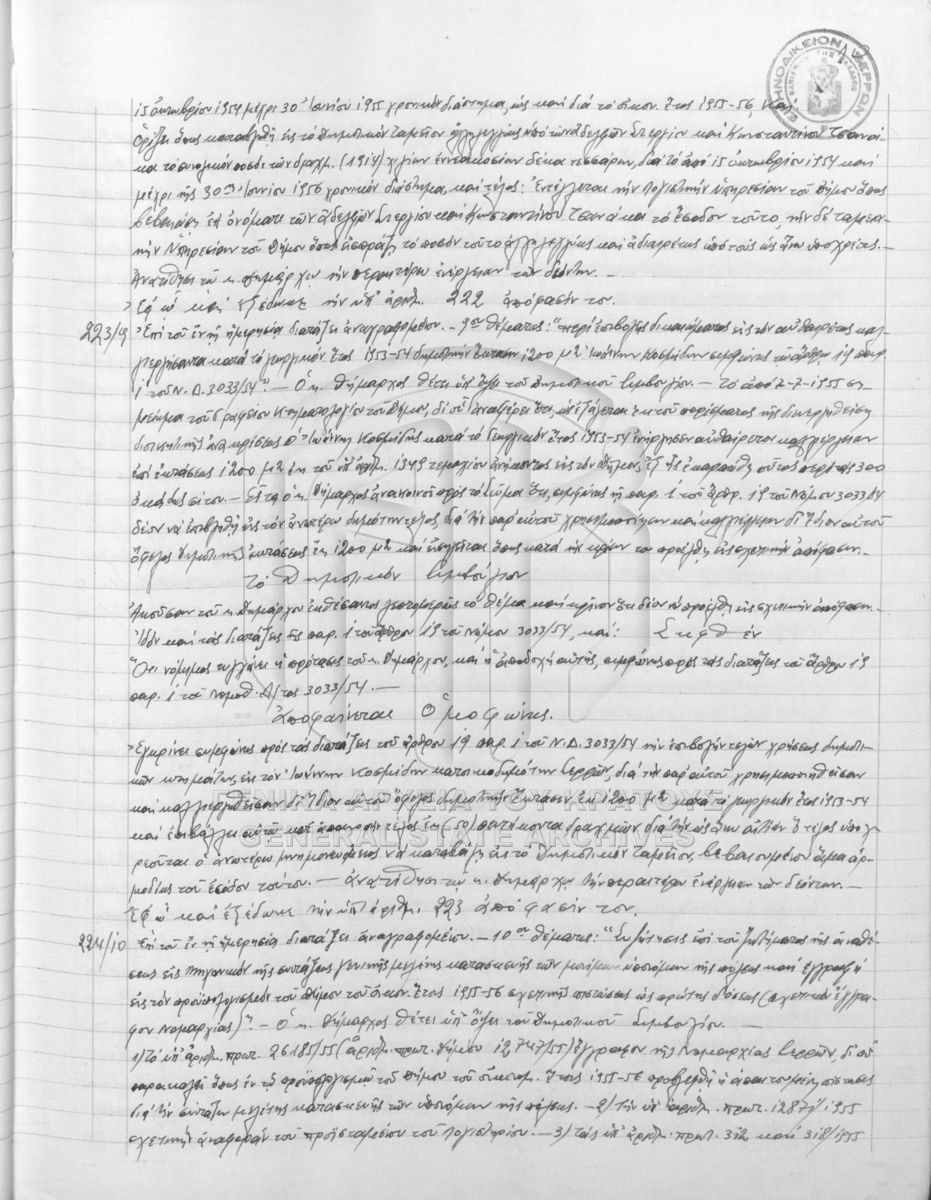 ΕΙΡΗΝΟΔΙΚΕΙΟΝ ΣΕΡΡΩΝ
15 Ὀκτωβρίου 1954 μέχρι 30 Ἰουνίου 1955 χρονικόν διάστημα, ὡς καί διά τό οἰκον. ἔτος 1955-56, καί
Ὁρίζει ὅπως καταβληθῇ εἰς τό Δημοτικόν Ταμεῖον ἀλληλεγγύως ὑπό τῶν ἀδελφῶν Στεργίου καί Κωνσταντίνου Τσανά-
κα τό συνολικόν ποσόν τῶν δραχμ. (1914) χιλίων ἐννεακοσίων δέκα τεσσάρων, διά τό ἀπό 15 Ὀκτωβρίου 1954 καί
μέχρι τῆς 30ης Ἰουνίου 1956 χρονικόν διάστημα, καί τέλος: Ἐντέλλεται τήν Λογιστικήν Ὑπηρεσίαν τοῦ Δήμου ὅπως
βεβαιώσῃ ἐπ' ὀνόματι τῶν ἀδελφῶν Στεργίου καί Κωνσταντίνου Τσανάκα τό ἔσοδον τοῦτο, τήν δέ ταμεια-
κήν Ὑπηρεσίαν τοῦ Δήμου ὅπως εἰσπράξῃ τό ποσόν τοῦτο ἀλληλεγγύως καί ἀδιαιρέτως ἀπό τούς ὡς ἄνω ὑποχρέους.—
Ἀνατίθησι τῷ κ. Δημάρχῳ τήν περαιτέρω ἐνέργειαν τῶν δεόντων.—
Ἐφ' ᾧ καί ἐξέδωκε τήν ὑπ' ἀριθμ. 222 ἀπόφασίν του.
223/9 Ἐπί τοῦ ἐν τῇ ἡμερησίᾳ διατάξει ἀναγραφομένου.— 9ου θέματος: "Περί ἐπιβολῆς δικαιώματος εἰς τόν αὐθαιρέτως καλ-
λιεργήσαντα κατά τό γεωργικόν ἔτος 1953-54 δημοτικήν ἔκτασιν 1200 μ2 Ἰωάννην Κοσμίδην συμφώνως τῷ ἄρθρῳ 19 παρ.
1 τοῦ Ν.Δ. 3033/54".— Ὁ κ. Δήμαρχος θέτει ὑπ' ὄψει τοῦ Δημοτικοῦ Συμβουλίου.— Τό ἀπό 7-7-1955 ση-
μείωμα τοῦ Γραφείου Κτηματολογίου τοῦ Δήμου, δι' οὗ ἀναφέρει ὅτι, ὡς ἐξάγεται ἐκ τοῦ πορίσματος τῆς διενεργηθείσης
διοικητικῆς ἀνακρίσεως ὁ Ἰωάννης Κοσμίδης κατά τό Γεωργικόν ἔτος 1953-54 ἐνήργησεν αὐθαίρετον καλλιέργειαν
ἐπί ἐκτάσεως 1200 μ2 ἐκ τοῦ ὑπ' ἀριθ. 1349 τεμαχίου ἀνήκοντος εἰς τόν Δῆμον, ἐξ ἧς ἐκαρπώθη οὗτος περίπου 300
ὀκάδας σίτου.— Εἶτα ὁ κ. Δήμαρχος ἀνακοινοῖ πρός τό Σῶμα ὅτι, συμφώνως τῇ παρ. 1 τοῦ ἄρθρ. 19 τοῦ Νόμου 3033/54
δέον νά ἐπιβληθῇ εἰς τόν ἀνωτέρω δημότην τέλος, διά τήν παρ' αὐτοῦ χρησιμοποίησιν καί καλλιέργειαν δι' ἴδιον αὐτοῦ
ὄφελος δημοτικῆς ἐκτάσεως ἐκ 1200 μ2 καί εἰσηγεῖται ὅπως κατά τήν κρίσιν του προέλθῃ εἰς σχετικήν ἀπόφασιν.—
Τό Δημοτικόν Συμβούλιον
Ἀκοῦσαν τοῦ κ. Δημάρχου ἐκθέσαντος λεπτομερῶς τό θέμα καί κρῖνον ὅτι δέον νά προέλθῃ εἰς σχετικήν ἀπόφασιν.—
Ἰδόν καί τάς διατάξεις τῆς παρ. 1 τοῦ ἄρθρου 19 τοῦ Νόμου 3033/54, καί: Σκεφθέν
Ὅτι νόμιμος τυγχάνει ἡ πρότασις τοῦ κ. Δημάρχου, καί ἡ ἀποδοχή αὐτῆς, συμφώνως πρός τάς διατάξεις τοῦ ἄρθρου 19
παρ. 1 τοῦ Νομοθ. Δ/τος 3033/54.—
Ἀποφαίνεται Ὁμοφώνως.
Ἐγκρίνει συμφώνως πρός τάς διατάξεις τοῦ ἄρθρου 19 παρ. 1 τοῦ Ν.Δ. 3033/54 τήν ἐπιβολήν τελῶν χρήσεως δημοτι-
κῶν κτημάτων, εἰς τόν Ἰωάννην Κοσμίδην κάτοικον δημότην Σερρῶν, διά τήν παρ' αὐτοῦ χρησιμοποιηθεῖσαν
καί καλλιεργηθεῖσαν δι' ἴδιον αὐτοῦ ὄφελος δημοτικήν ἔκτασιν ἐκ 1200 μ2 κατά τό γεωργικόν ἔτος 1953-54
ΓΕΝΙΚΑ ΑΡΧΕΙΑ ΤΟΥ ΚΡΑΤΟΥΣ
καί ἐπιβάλλει αὐτῷ κατ' ἀποκοπήν τέλος ἐκ (50) πεντήκοντα δραχμῶν διά τήν ὡς ἄνω αἰτίαν ὅ τέλος ὑποχ-
GENERAL STATE ARCHIVES
ρεοῦται ὁ ἀνωτέρω μνημονευόμενος νά καταβάλῃ εἰς τό Δημοτικόν Ταμεῖον, βεβαιουμένου ἅμα ἁρ-
μοδίως τοῦ ἐσόδου τούτου.— Ἀνατίθησι τῷ κ. Δημάρχῳ τήν περαιτέρω ἐνέργειαν τῶν δεόντων.—
Ἐφ' ᾧ καί ἐξέδωκε τήν ὑπ' ἀριθμ. 223 ἀπόφασίν του.
224/10 Ἐπί τοῦ ἐν τῇ ἡμερησίᾳ διατάξει ἀναγραφομένου.— 10ου θέματος: "Συζήτησις ἐπί τοῦ ζητήματος τῆς ἀναθέ-
σεως εἰς μηχανικόν τῆς συντάξεως γενικῆς μελέτης κατασκευῆς τῶν μονίμων ὑπονόμων τῆς πόλεως καί ἐγγραφή
εἰς τόν προϋπολογισμόν τοῦ Δήμου τοῦ οἰκον. ἔτους 1955-56 σχετικῆς πιστώσεως ὡς πρώτης δόσεως (σχετικόν ἔγγρα-
φον Νομαρχίας)".— Ὁ κ. Δήμαρχος θέτει ὑπ' ὄψει τοῦ Δημοτικοῦ Συμβουλίου.—
1) Τό ὑπ' ἀριθμ. πρωτ. 26185/55 (ἀριθμ. πρωτ. Δήμου 12747/55) ἔγγραφον τῆς Νομαρχίας Σερρῶν, δι' οὗ
παρακαλεῖ ὅπως ἐν τῷ προϋπολογισμῷ τοῦ Δήμου τοῦ οἰκονομ. ἔτους 1955-56 προβλεφθῇ ἡ ἀπαιτουμένη πίστωσις
διά τήν σύνταξιν μελέτης κατασκευῆς τῶν ὑπονόμων τῆς πόλεως.— 2) Τήν ὑπ' ἀριθμ. πρωτ. 1287/1955
σχετικήν ἀναφοράν τοῦ προϊσταμένου τοῦ Λογιστηρίου.— 3) Τάς ὑπ' ἀριθμ. πρωτ. 312 καί 318/1955